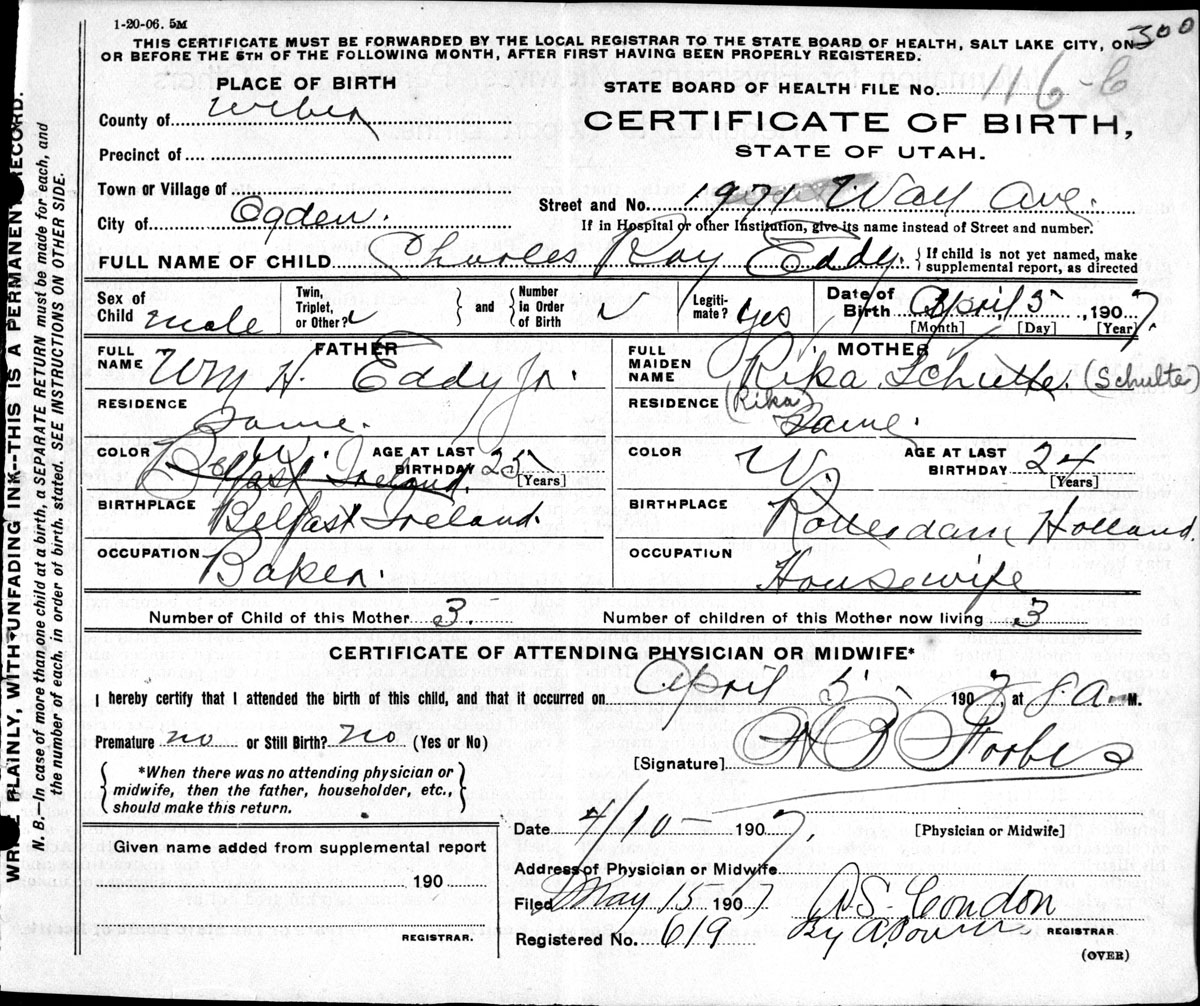 1-20-06. 5M
300
THIS CERTIFICATE MUST BE FORWARDED BY THE LOCAL REGISTRAR TO THE STATE BOARD OF HEALTH, SALT LAKE CITY, ON
OR BEFORE THE 5TH OF THE FOLLOWING MONTH, AFTER FIRST HAVING BEEN PROPERLY REGISTERED.
PLACE OF BIRTH
STATE BOARD OF HEALTH FILE No. 116-6
County of Weber
CERTIFICATE OF BIRTH,
Precinct of
STATE OF UTAH.
Town or Village of
Street and No. 1971 Wall Ave.
City of Ogden.
If in Hospital or other Institution, give its name instead of Street and number.
FULL NAME OF CHILD Charles Ray Eddy. { If child is not yet named, make supplemental report, as directed
Sex of Child male
Twin, Triplet, or Other? } and { Number In Order of Birth
Legiti-mate? yes
Date of Birth April 5, 1907.
[Month] [Day] [Year]
FATHER
FULL NAME Wm H. Eddy Jr.
RESIDENCE Same.
COLOR Belfast Ireland.
AGE AT LAST BIRTHDAY 25 [Years]
BIRTHPLACE Belfast Ireland.
OCCUPATION Baker.
MOTHER
FULL MAIDEN NAME Rika Schulte. (Schulte)
RESIDENCE (Rika) Same.
COLOR W.
AGE AT LAST BIRTHDAY 24 [Years]
BIRTHPLACE Rotterdam Holland.
OCCUPATION Housewife
Number of Child of this Mother 3
Number of children of this Mother now living 3
CERTIFICATE OF ATTENDING PHYSICIAN OR MIDWIFE*
I hereby certify that I attended the birth of this child, and that it occurred on April 5 1907, at 8 A M.
Premature no or Still Birth? no (Yes or No)
[Signature] Forbes
{ *When there was no attending physician or
midwife, then the father, householder, etc.,
should make this return. }
Date 4/10 1907.
[Physician or Midwife]
Given name added from supplemental report
190
REGISTRAR.
Address of Physician or Midwife
Filed May 15 1907 A S. Condon
REGISTRAR.
Registered No. 619 By
(OVER)
WRITE PLAINLY, WITH UNFADING INK--THIS IS A PERMANENT RECORD.
N. B.—In case of more than one child at a birth, a SEPARATE RETURN must be made for each, and
the number of each, in order of birth, stated. SEE INSTRUCTIONS ON OTHER SIDE.